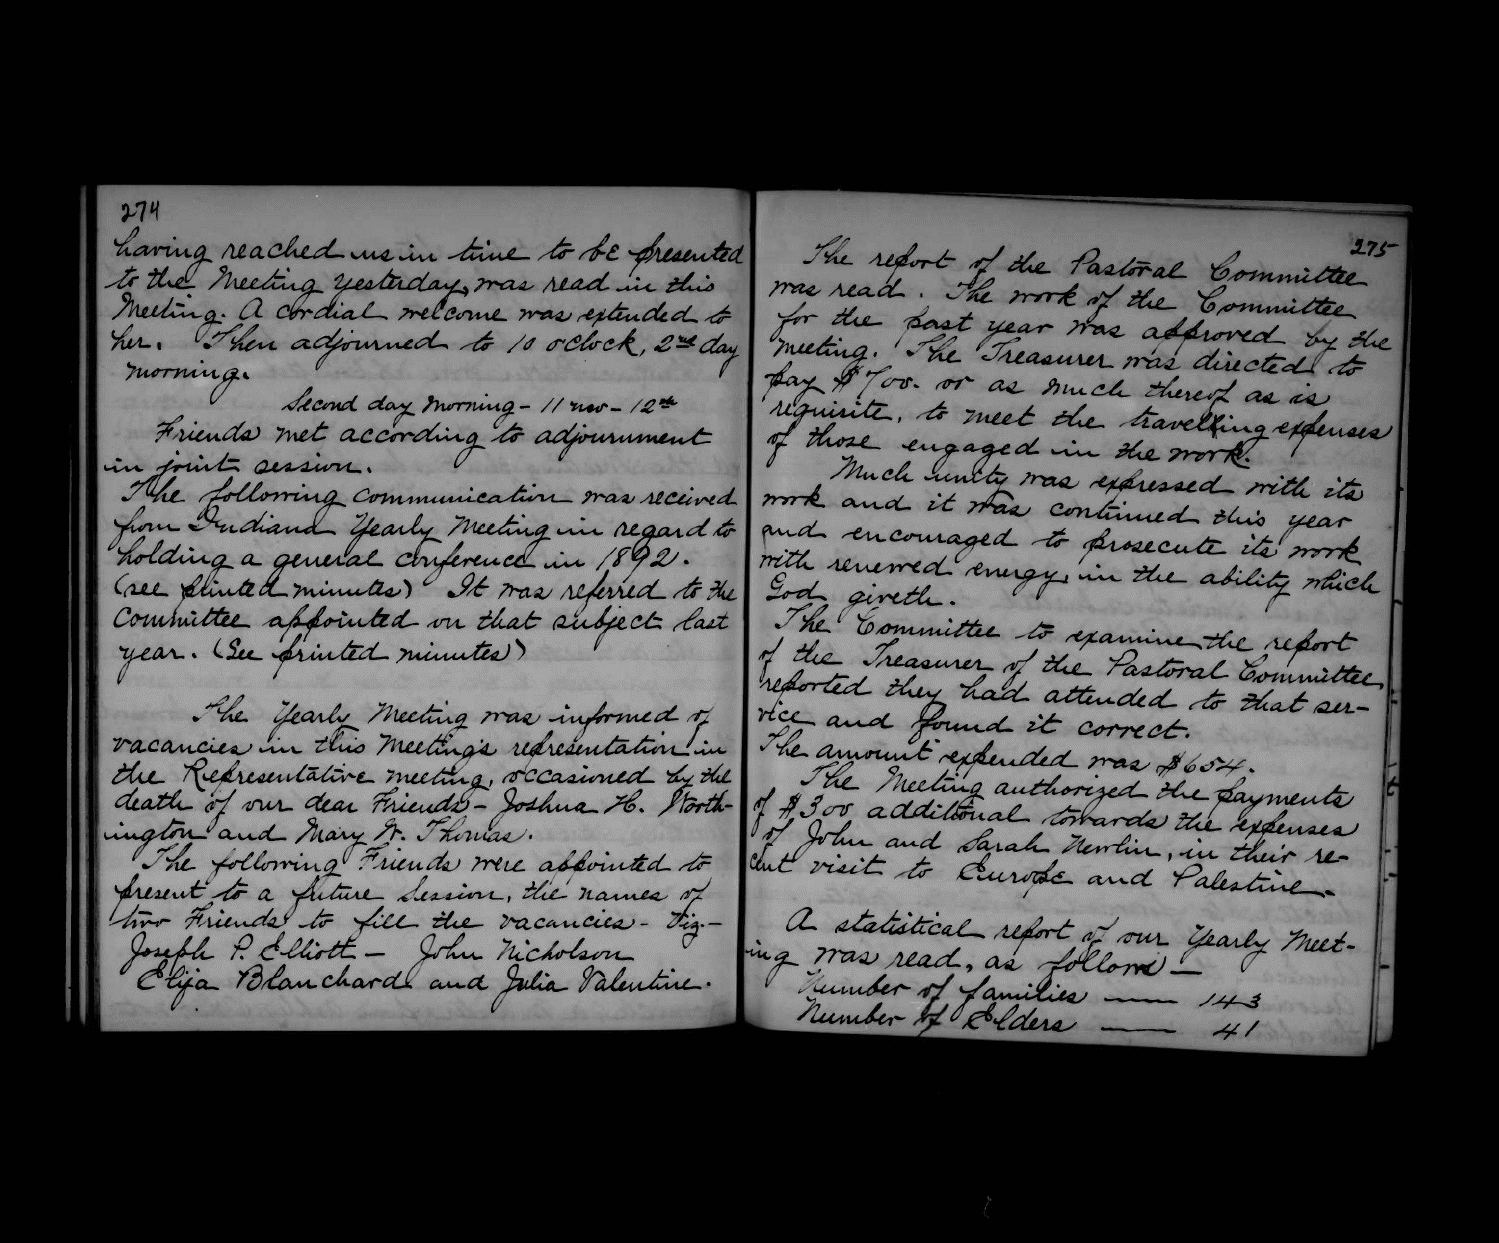 274
having reached us in time to be presented
to the Meeting yesterday, was read in this
Meeting. A cordial welcome was extended to
her. Then adjourned to 10 oclock, 2nd day
morning.
Second day Morning - 11 mo - 12th
Friends met according to adjournment
in joint session.
The following communication was received
from Indiana Yearly Meeting in regard to
holding a general conference in 1892.
(see printed minutes) It was referred to the
Committee appointed on that subject last
year. (See printed minutes)
The Yearly Meeting was informed of
vacancies in this Meetings representation in
the Representative meeting, occasioned by the
death of our dear Friends - Joshua H. Worth-
ington and Mary W. Thomas.
The following Friends were appointed to
present to a future Session, the names of
two Friends to fill the vacancies - Viz. -
Joseph P. Elliott - John Nicholson
Eliza Blanchard and Julia Valentine.
275
The report of the Pastoral Committee
was read. The work of the Committee
for the past year was approved by the
meeting. The Treasurer was directed to
pay $700. or as much thereof as is
requisite, to meet the travelling expenses
of those engaged in the work.
Much unity was expressed with its
work and it was continued this year
and encouraged to prosecute its work
with renewed energy, in the ability which
God giveth.
The Committee to examine the report
of the Treasurer of the Pastoral Committee
reported they had attended to that ser-
vice and found it correct.
The amount expended was $654.
The Meeting authorized the payments
of $300 additional towards the expenses
of John and Sarah Newlin, in their re-
cent visit to Europe and Palestine.
A statistical report of our Yearly Meet-
ing was read, as follows -
Number of families - 143
Number of Elders - 41